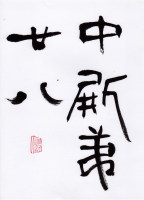 中弟
廿八